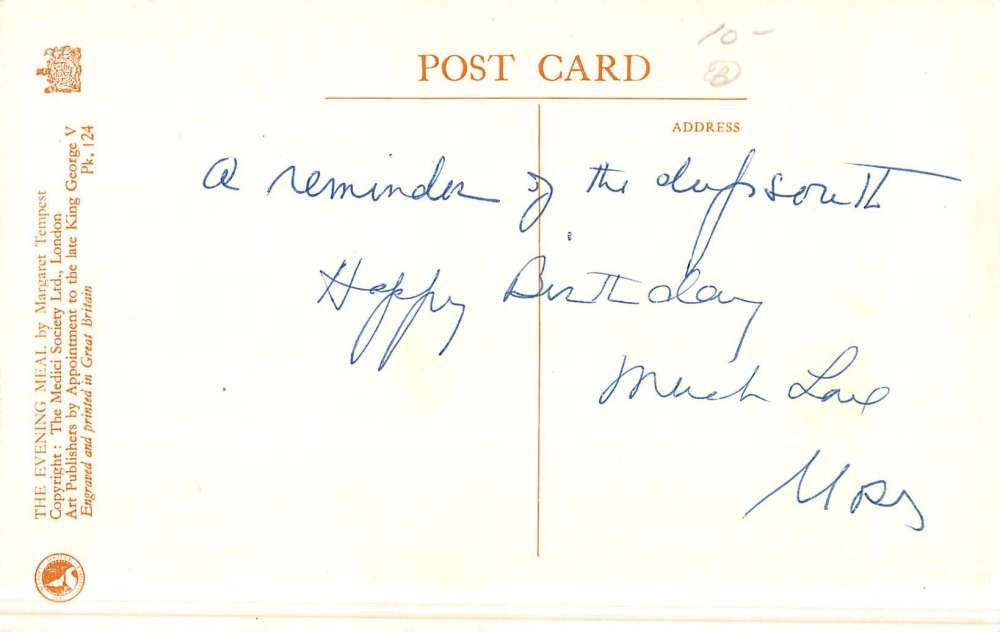 10-
POST CARD
ADDRESS
a reminder of the deep south
Happy Birthday
Much Love
THE EVENING MEAL by Margaret Tempest
Copyright : The Medici Society Ltd., London
Art Publishers by Appointment to the late King George V
Engraved and printed in Great Britain
Pk. 124